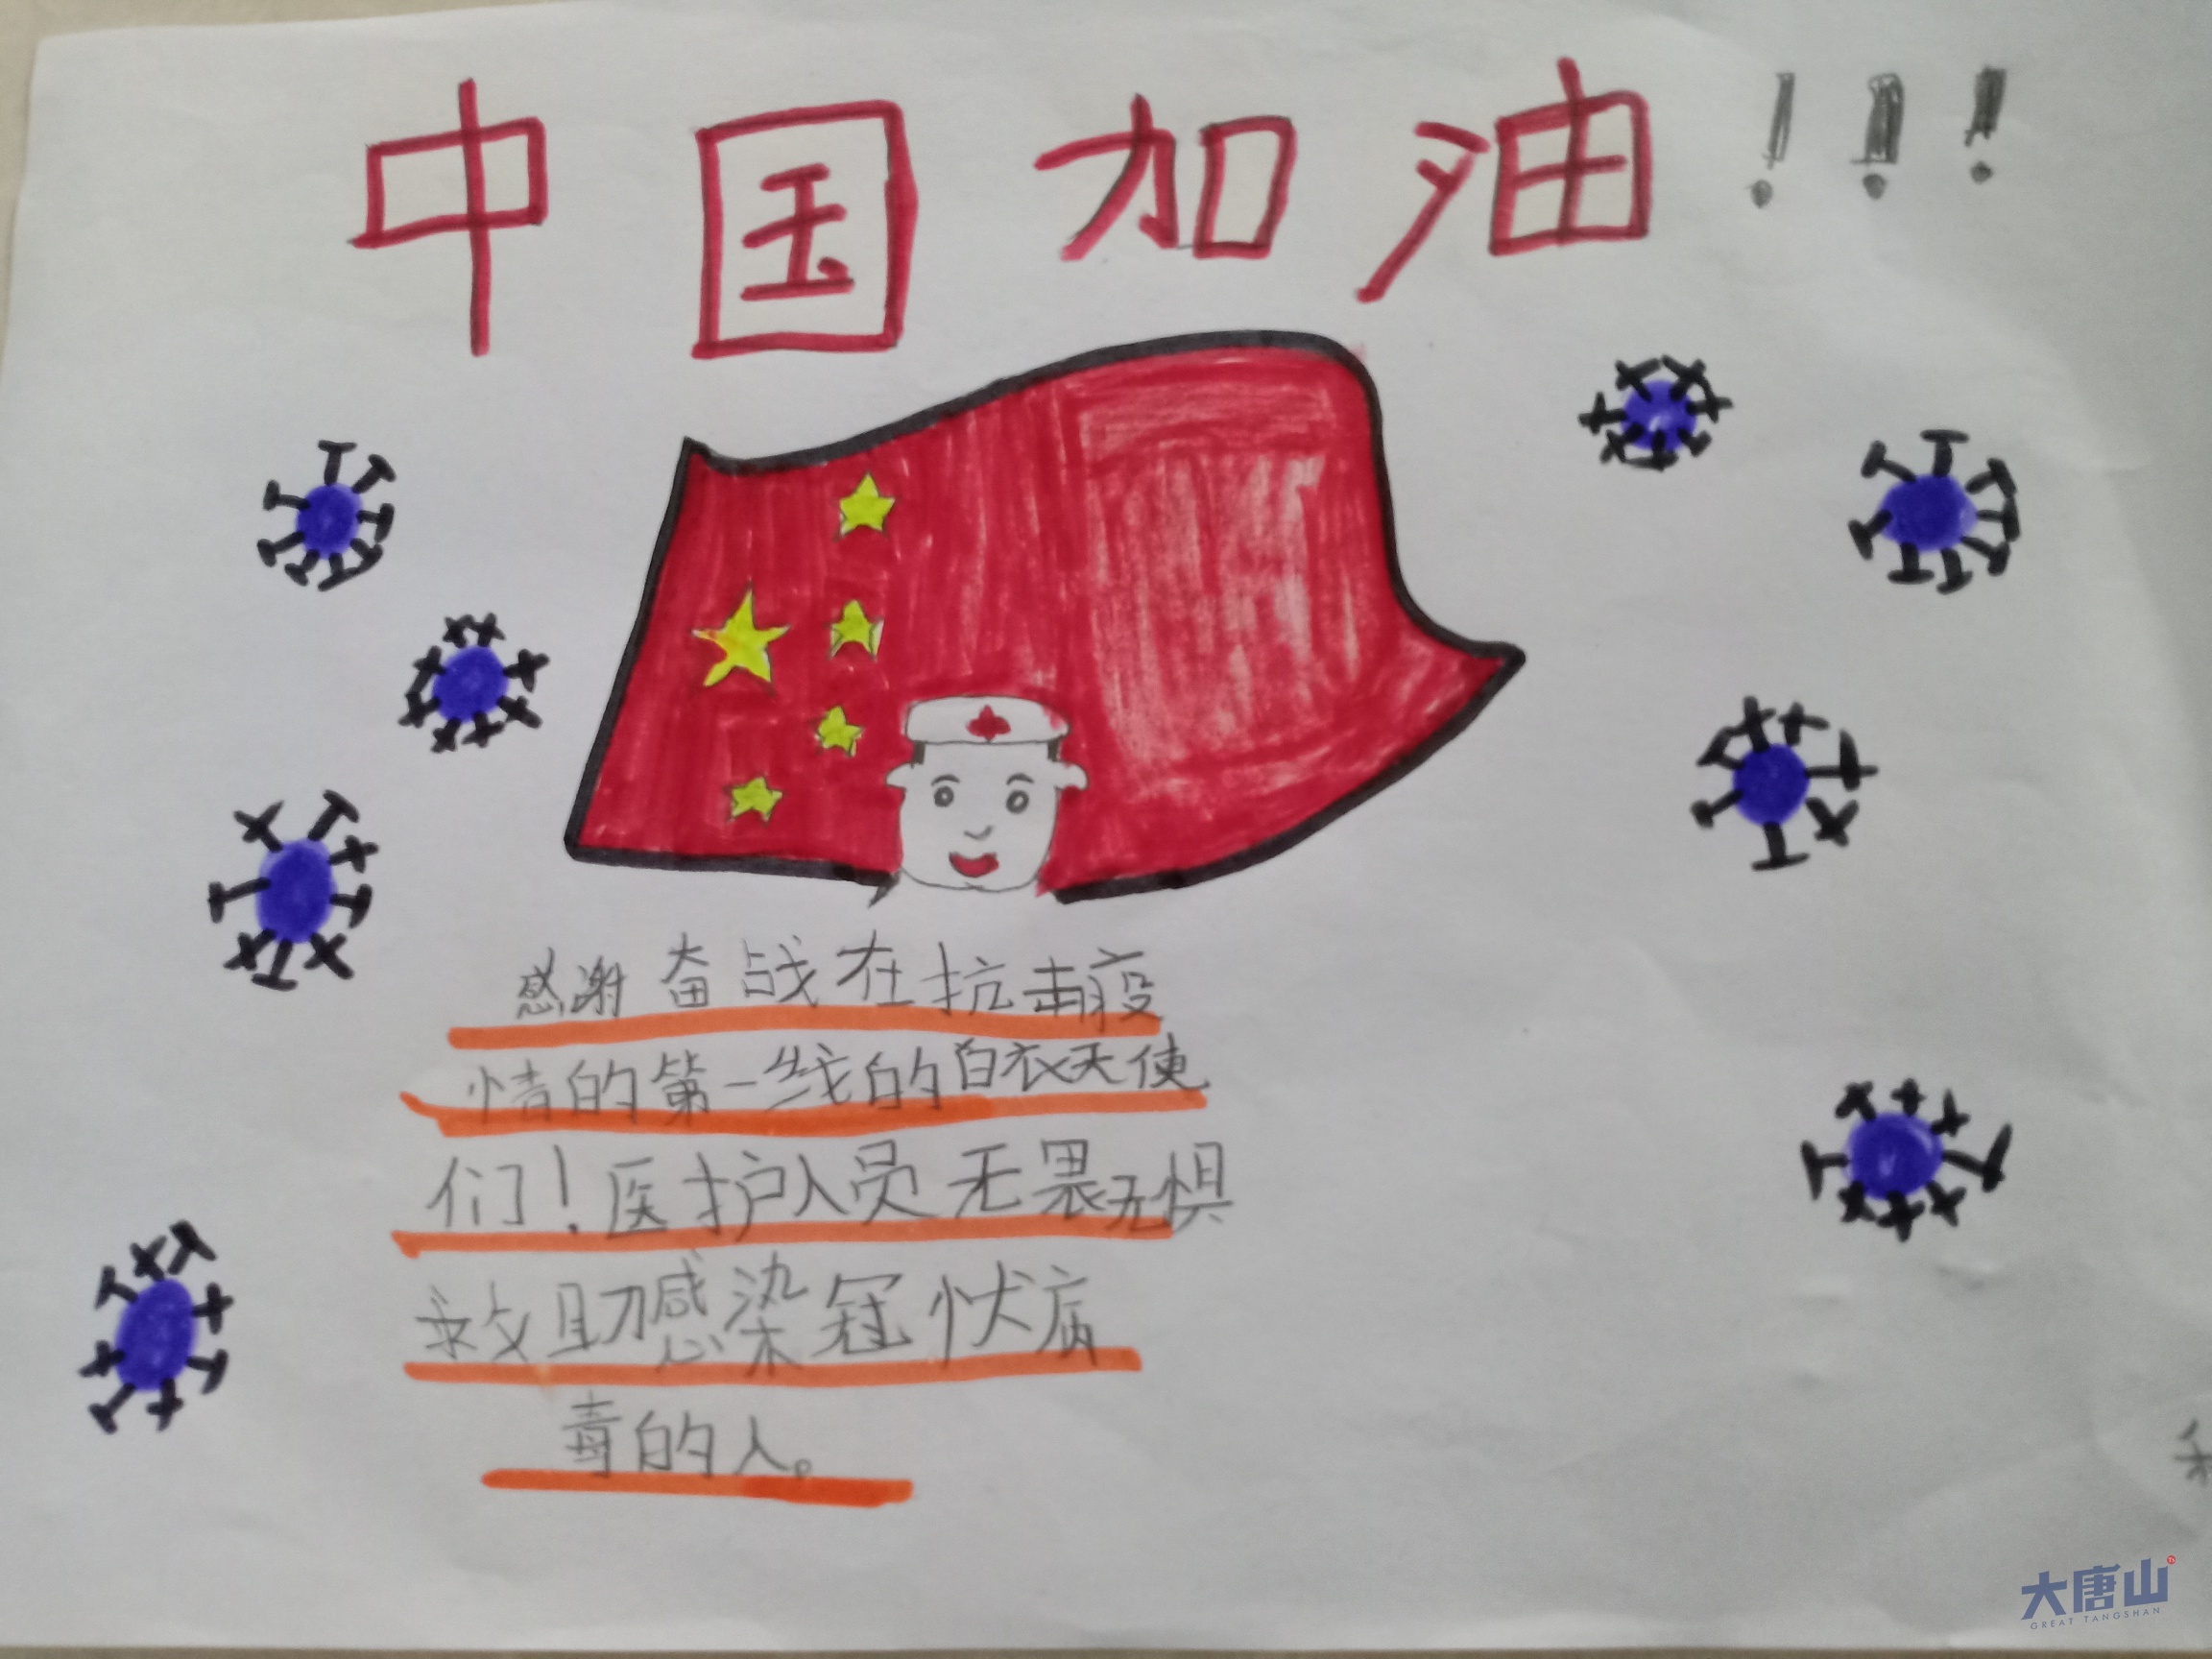 中国加油！！！
感谢奋战在抗击疫
情的第一线的白衣天使
们！医护人员无畏无惧
救助感染冠状病
毒的人。
大唐山
GREAT TANGSHAN